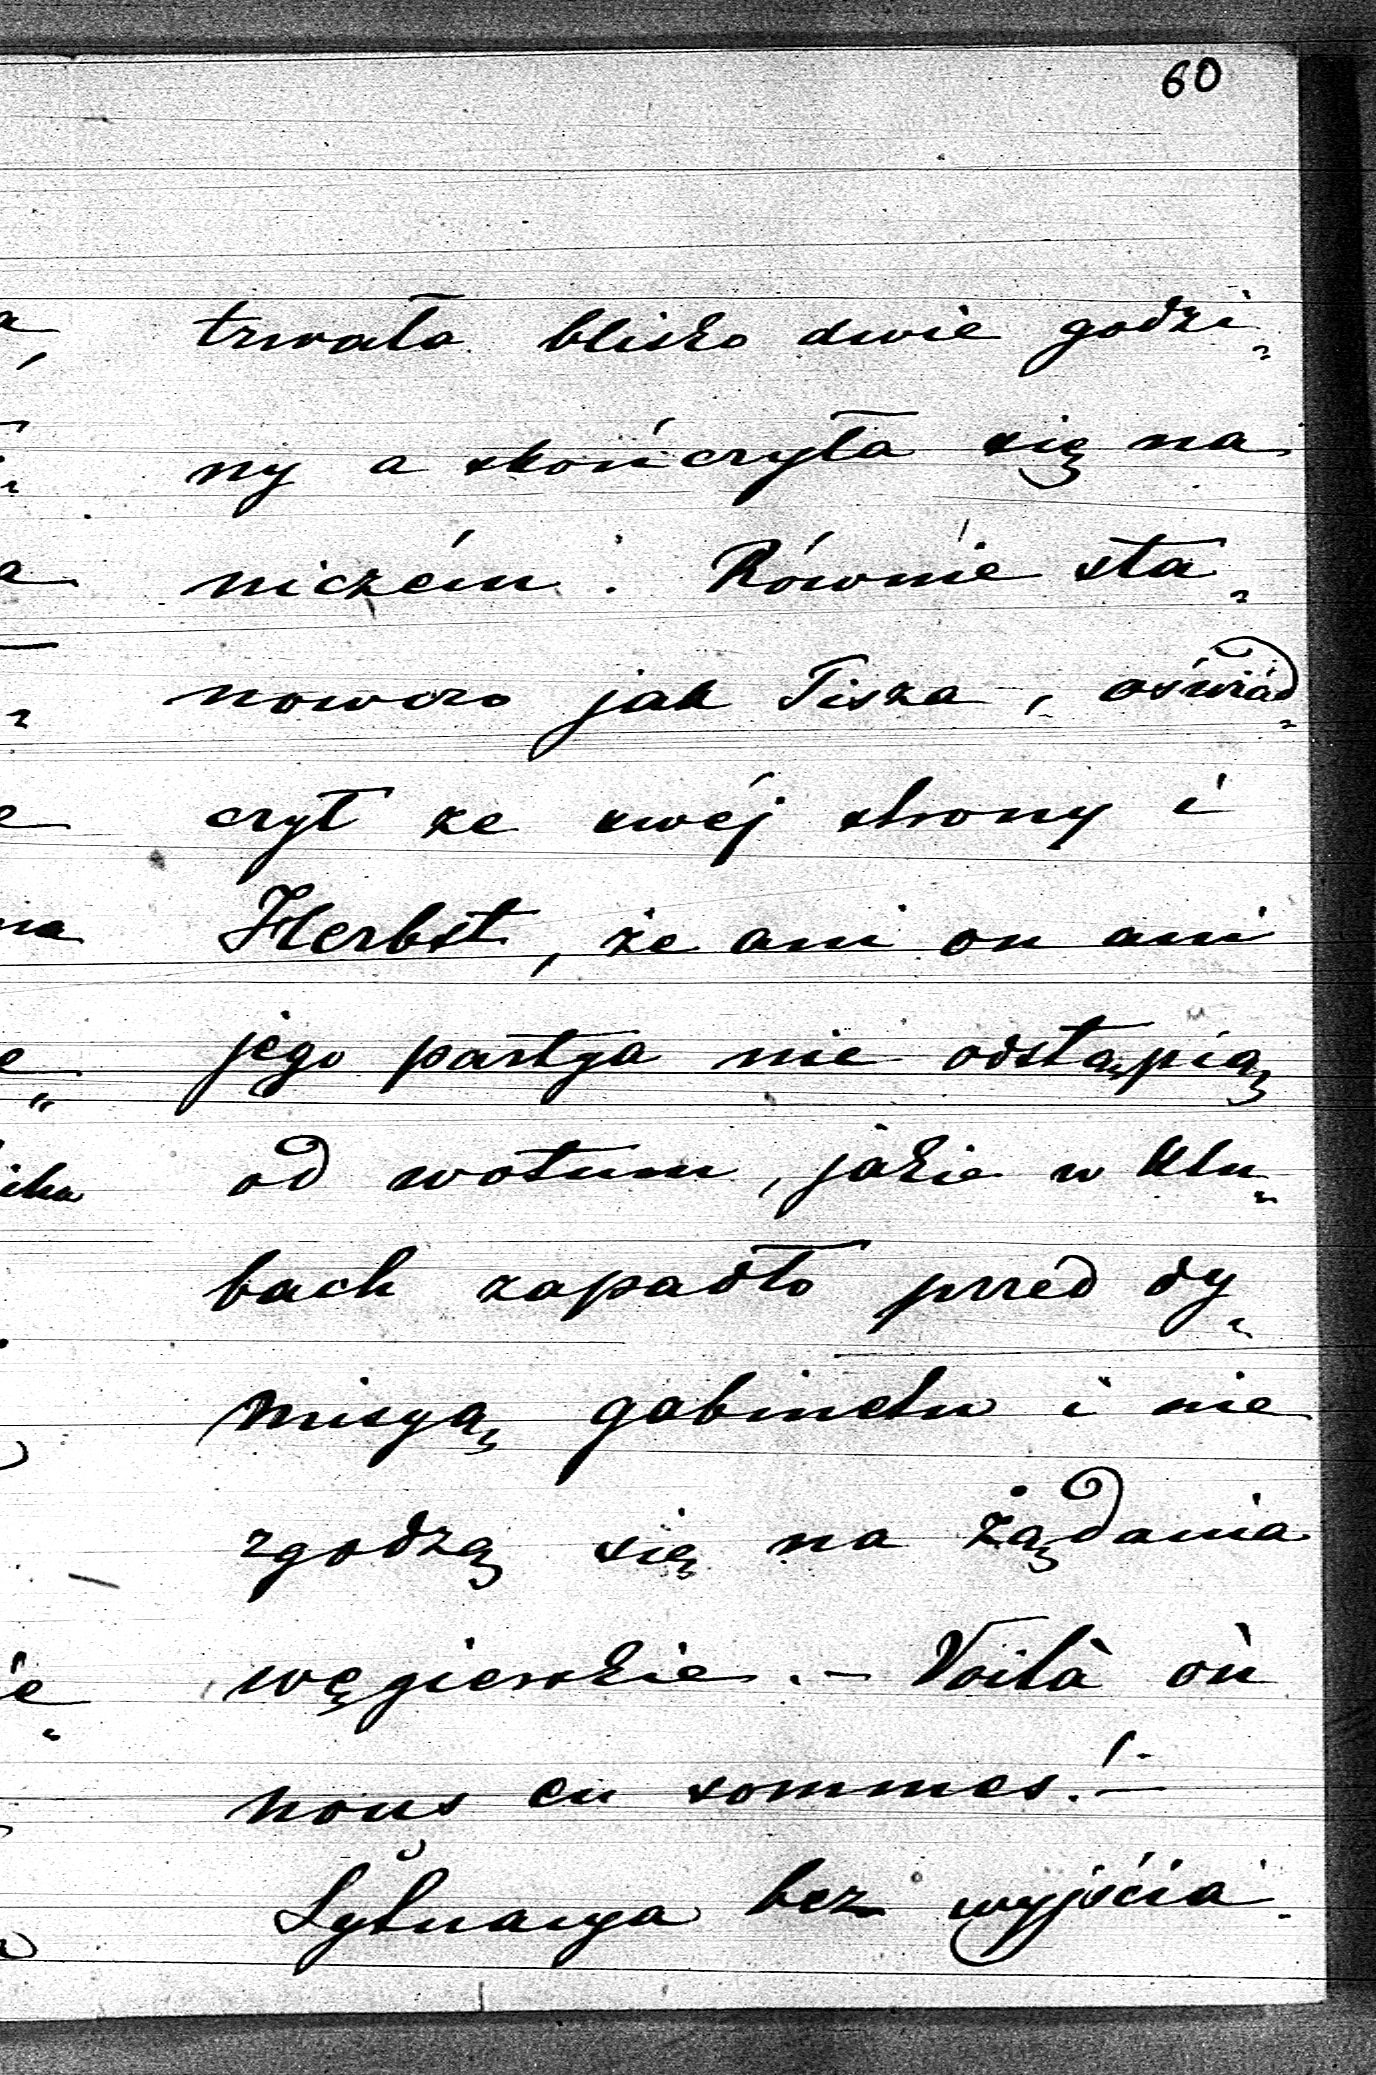 60
trwała blisko dwie godzi„
ny a skończyła się na
niczém. Równie sta„
nowczo jak Tisza, oświad„
czył ze swéj strony i
Herbst, że ani on ani
jego partya nie odstąpią
od wotum, jakie w klu„
bach zapadło przed dy„
misyą gabinetu i nie
zgodzą się na żądania
węgierskie. – Voilà où
nous en sommes! –
Sytuacya bez wyjścia.